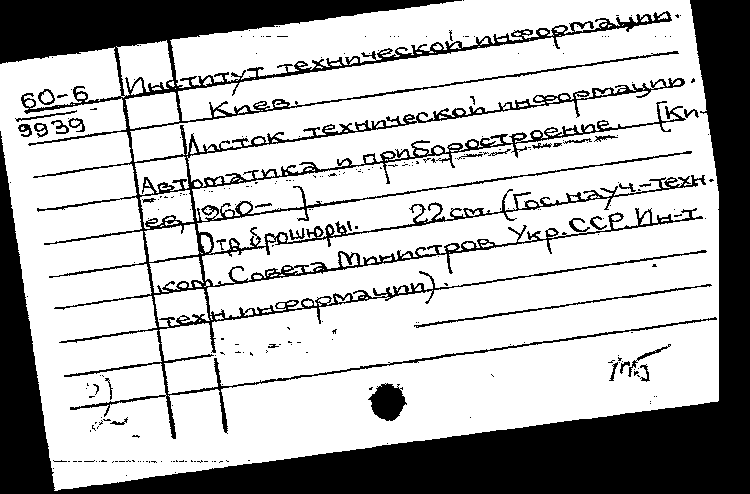 60-6
9939
Институт технической информации.
Киев.
Листок технической информации.
Автоматика и приборостроение. [Ки-
ев, 1960- ]
Отд. брошюры. 22 см. (Гос. науч.-техн.
ком. Совета Министров Укр. ССР. Ин-т
техн. информации).
2